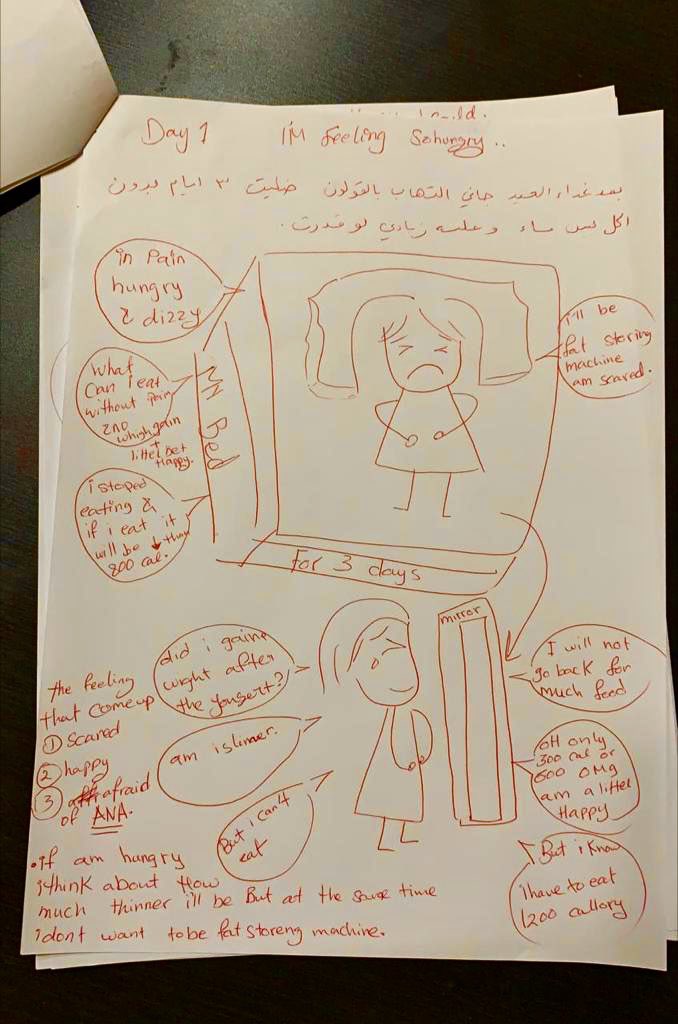 Day 1 I'M feeling So hungry..
بعد غداء العيد جاني التهاب بالقولون ضليت ٣ ايام بدون
اكل بس ماء وعلبه زبادي لو قدرت.
in Pain
hungry
& dizzy
i'll be
fat storing
machine
am scared.
What
Can i eat
without Pain
& no
whigh gain
+
littel bet
Happy.
My Bed
i stoped
eating &
if i eat it
will be ↓ than
800 cal.
For 3 days
mirror
did i gaine
wight after
the yougert?
I will not
go back for
much feed
the feeling
that come up
① scared
② happy
③ afraid
of ANA.
am islimer.
But i can't
eat
oH only
300 cal or
600 OMg
am a littel
Happy
But i know
i have to eat
1200 callory
• if am hungry
i think about How
much thinner i'll be But at the same time
i dont want to be fat storeng machine.